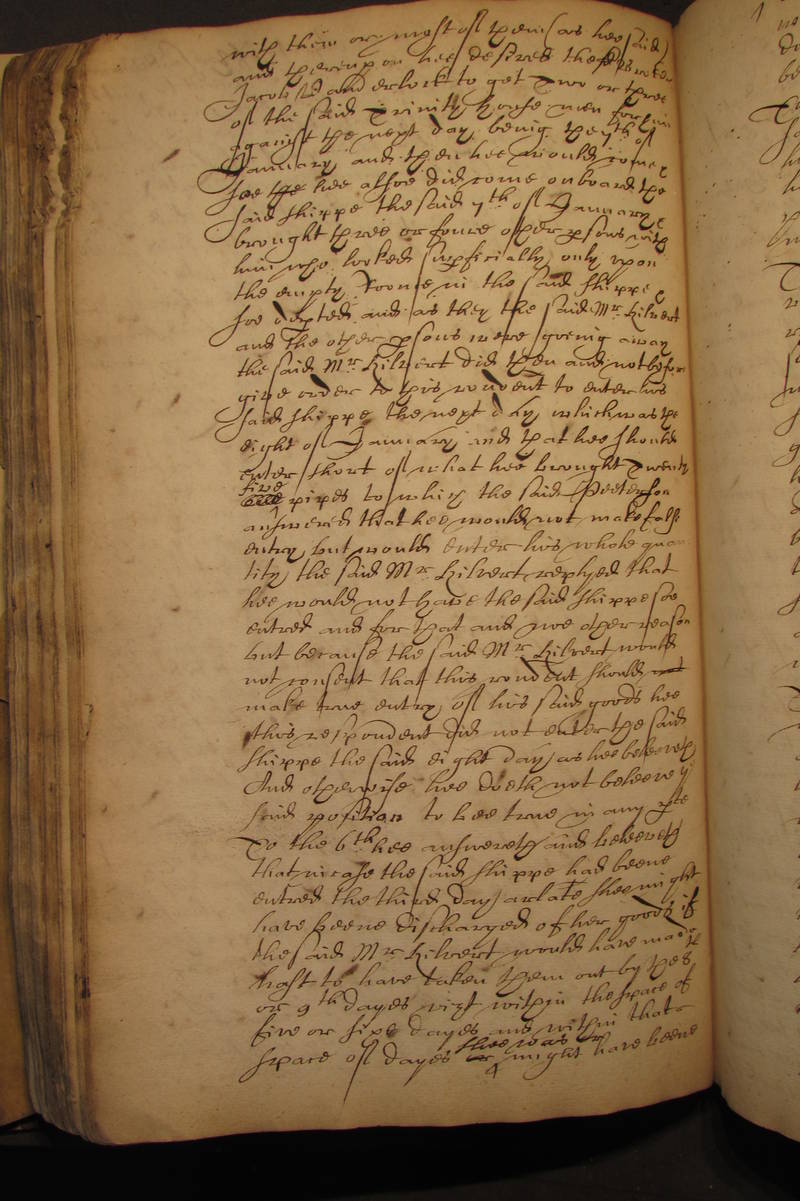 with him or most of them (as hee said)
and thereupon hee desired the said broker
Jacob Wanderlock to get two or three
of the said Trinity house men for him
against the next day being the 7th of
January and then hee would come
soe the hee alsoe did come onboard the
said shippe the said 7th of January
brought three or foure other psons with
him who looked supficially only upon
the empty Roome in the said shippe
soe depted and as they the said Mr Kilvert
and the other psons were goeing away
the said Mr Kilvert did then and not before
give order to this rondent to enter his
said shippe the next day which was the
eight of January and that hee should
enter short of what hee brought twenty
five pipes to which the said Peeterson
answered that hee would not make false
entry but would enter his whole quan
tity the said Mr Kilvert replyed that
hee would not have the said shippe soe
entred and for that and noe other reason
but because the said Mr Kilvert would
not consent that this rondent should not
make true entry of his said goods hee
this respondent did not enter the said
shippe the said eight day as hee beleeveth
And otherwise hee doeth not beleeve ye
said position to bee true in any pte
To the 6th hee answereth and beleeveth
that in case the said shippe had beene
entred the third day as late shee might
have beene discharged of her goods if
the said Mr Kilvert would have made
hast to have taken them out by the 8th
or 9th dayes vizt within the space of
five or sixe dayes and within that
space of dayes shee was or might have beene